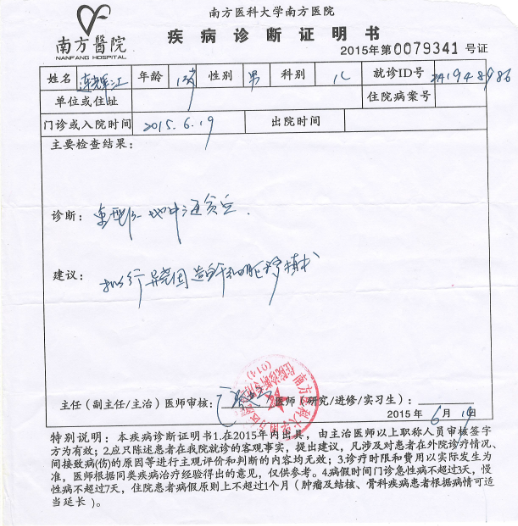 南方医科大学南方医院
南方醫院
NANFANG HOSPITAL
疾病诊断证明书
2015年第0079341号证
姓名 江 年龄 1岁 性别 男 科别 儿 就诊ID号
单位或住址 住院病案号
门诊或入院时间 2015.6.19 出院时间
主要检查结果:
诊断: 重型β-地中海贫血.
建议: 拟行异基因造血干细胞移植术
主任(副主任/主治)医师审核: 医师(研究/进修/实习生):
2015年6月19日
特别说明:本疾病诊断证明书1.在2015年内出具,由主治医师以上职称人员审核签字
方为有效;2.应只陈述患者在我院就诊的客观事实,提出建议,凡涉及对患者在外院诊疗情况、
间接致病(伤)的原因等进行主观评价和判断的内容均无效;3.诊疗时限和费用以实际发生为
准,医师根据同类疾病治疗经验得出的意见,仅供参考。4.病假时间门诊急性病不超过3天,慢
性病不超过7天,住院患者病假原则上不超过1个月(肿瘤及结核、骨科疾病患者根据病情可适
当延长)。